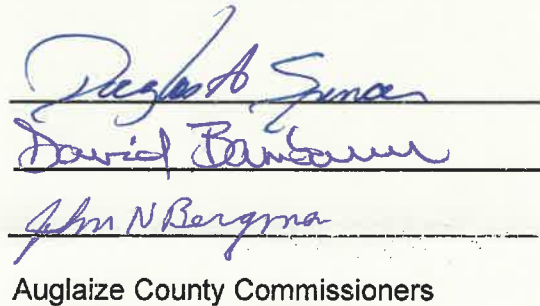 Douglas A Spencer
David Bambauer
John N Bergman
Auglaize County Commissioners